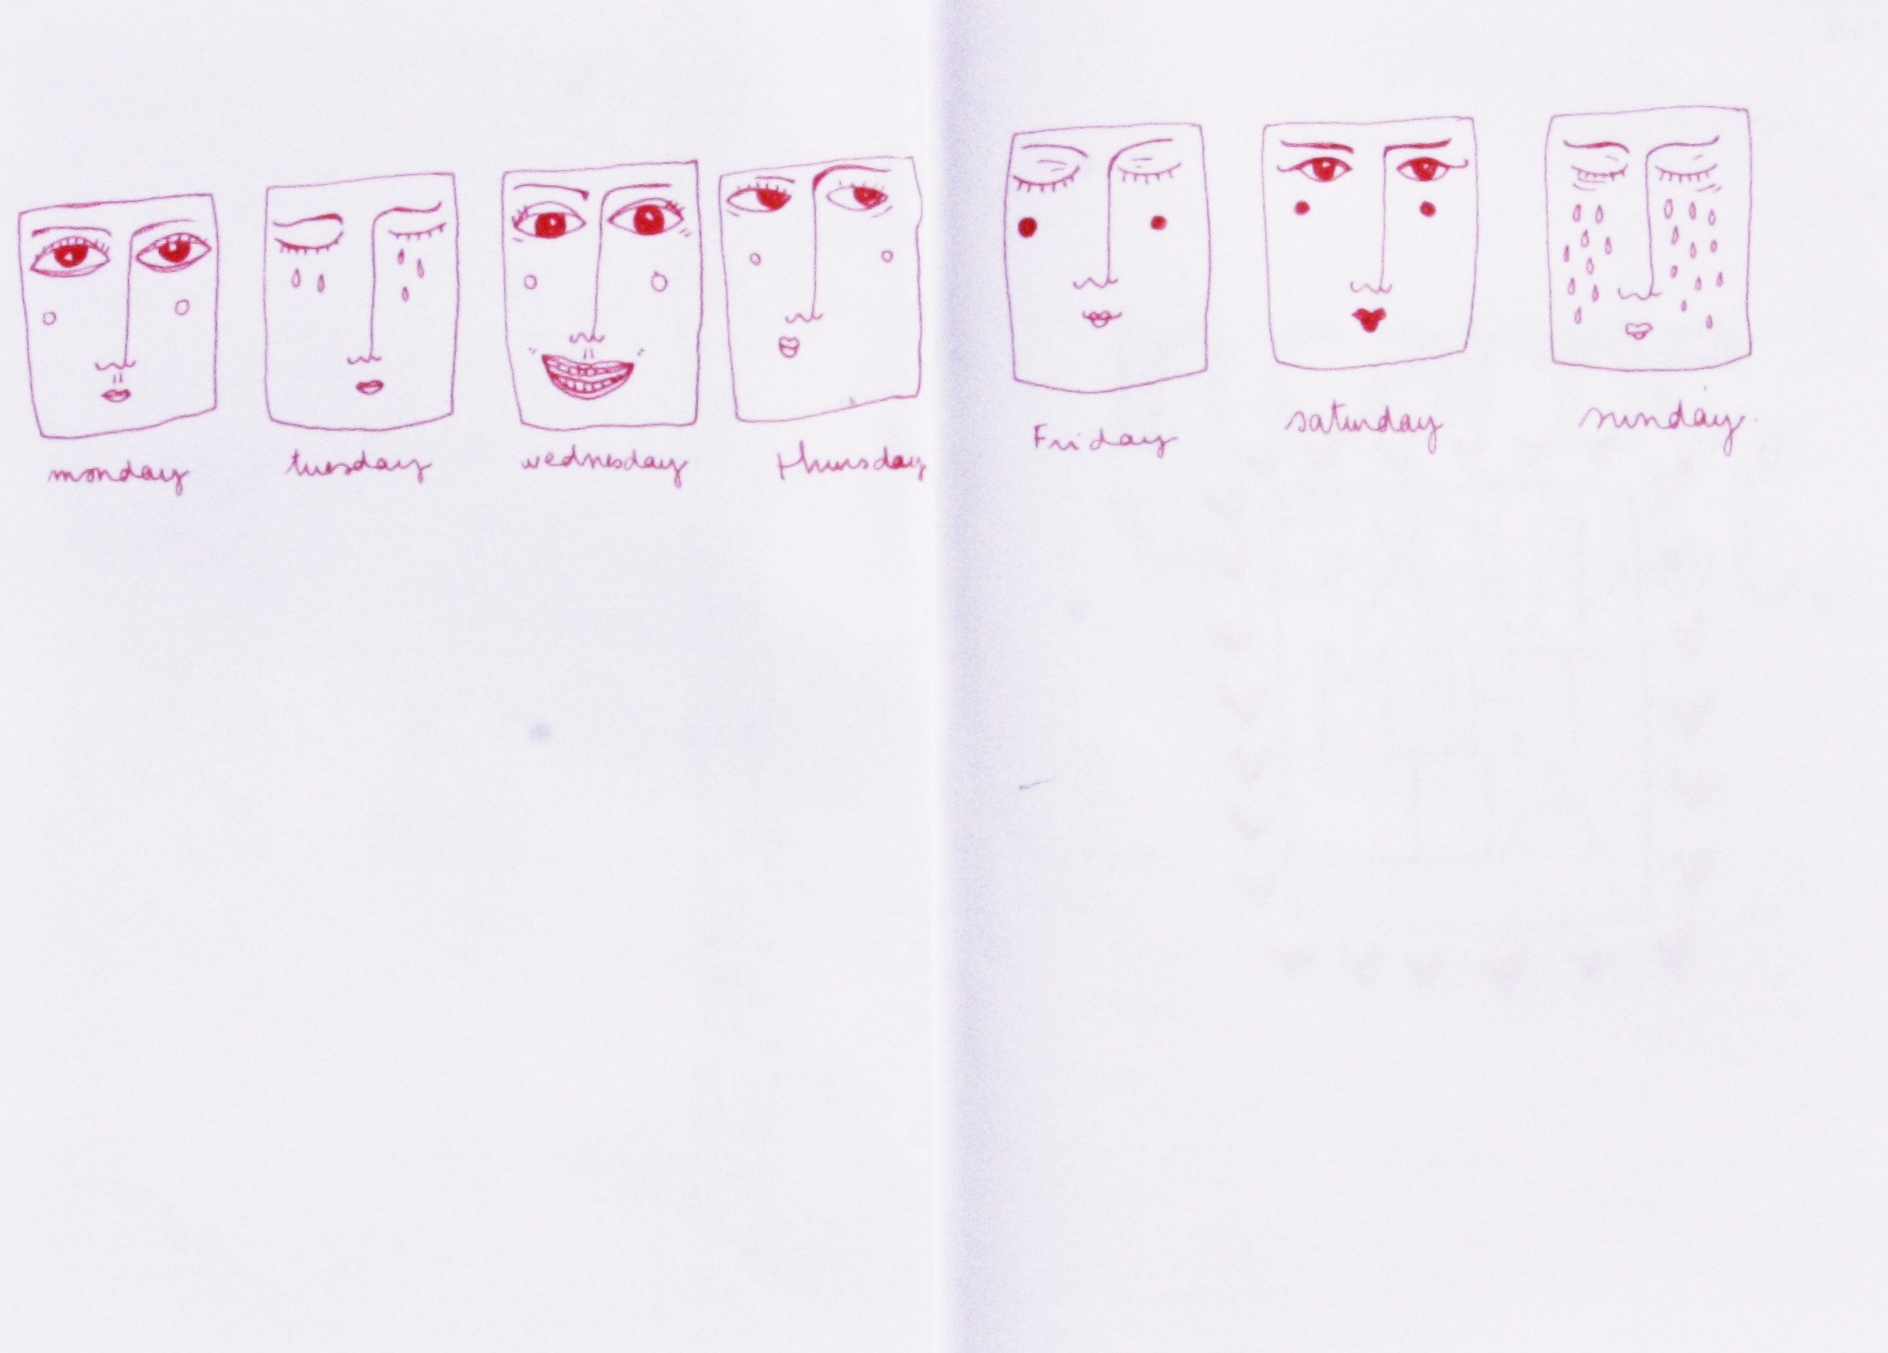 monday
tuesday
wednesday
thursday
Friday
saturday
sunday.